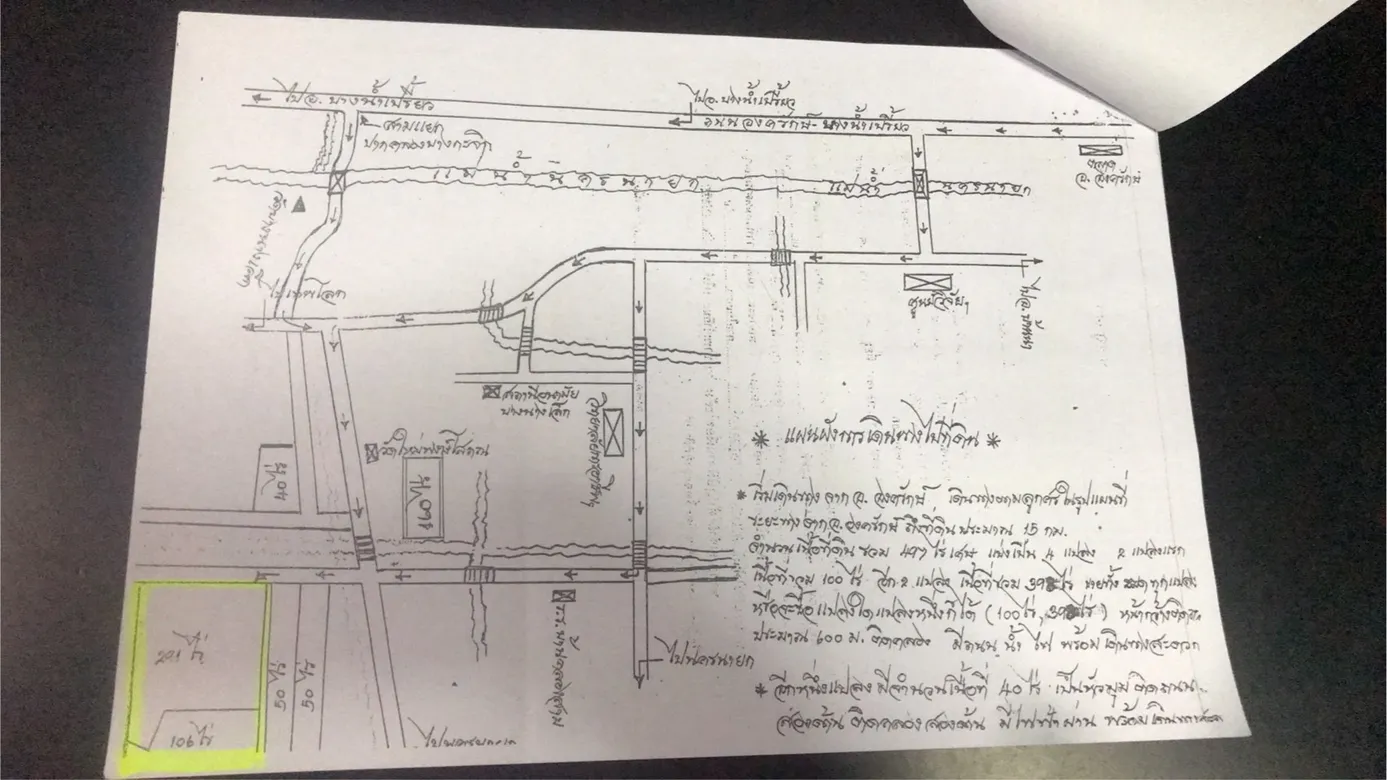 ไป อ. บางน้ำเปรี้ยว
ไป อ. บางน้ำเปรี้ยว
ถนนองครักษ์-บางน้ำเปรี้ยว
สามแยก
ปากคลองบางกะจิก
ตลาด
อ. องครักษ์
แม่น้ำนครนายก
แม่น้ำ นครนายก
ไปเทพโลก
ศูนย์วิจัยฯ
ไป อ. บ้านนา
สถานีอนามัย
บางนางเล็ก
40 ไร่
160 ไร่
ไปนครนายก
291 ไร่
106 ไร่
50 ไร่
50 ไร่
* แผนผังการเดินทางไปที่ดิน *
* เริ่มเดินทาง จาก อ. องครักษ์ เดินทางตามลูกศรในรูปแผนที่
ระยะทางจาก อ. องครักษ์ ถึงที่ดิน ประมาณ 15 กม.
จำนวนเนื้อที่ดิน รวม 497 ไร่เศษ แบ่งเป็น 4 แปลง 2 แปลงแรก
เนื้อที่รวม 100 ไร่ อีก 2 แปลง เนื้อที่รวม ไร่ ขายทั้งหมดทุกแปลง
หรือจะซื้อแปลงใดแปลงหนึ่งก็ได้ (100 ไร่, ไร่) หน้ากว้างติด
ประมาณ 600 ม. ติดคลอง มีถนน น้ำ ไฟ พร้อม เดินทางสะดวก
* อีกหนึ่งแปลง มีจำนวนเนื้อที่ 40 ไร่ เป็นหัวมุม ติดถนน
สองด้าน ติดคลองสองด้าน มีไฟฟ้าผ่าน พร้อม